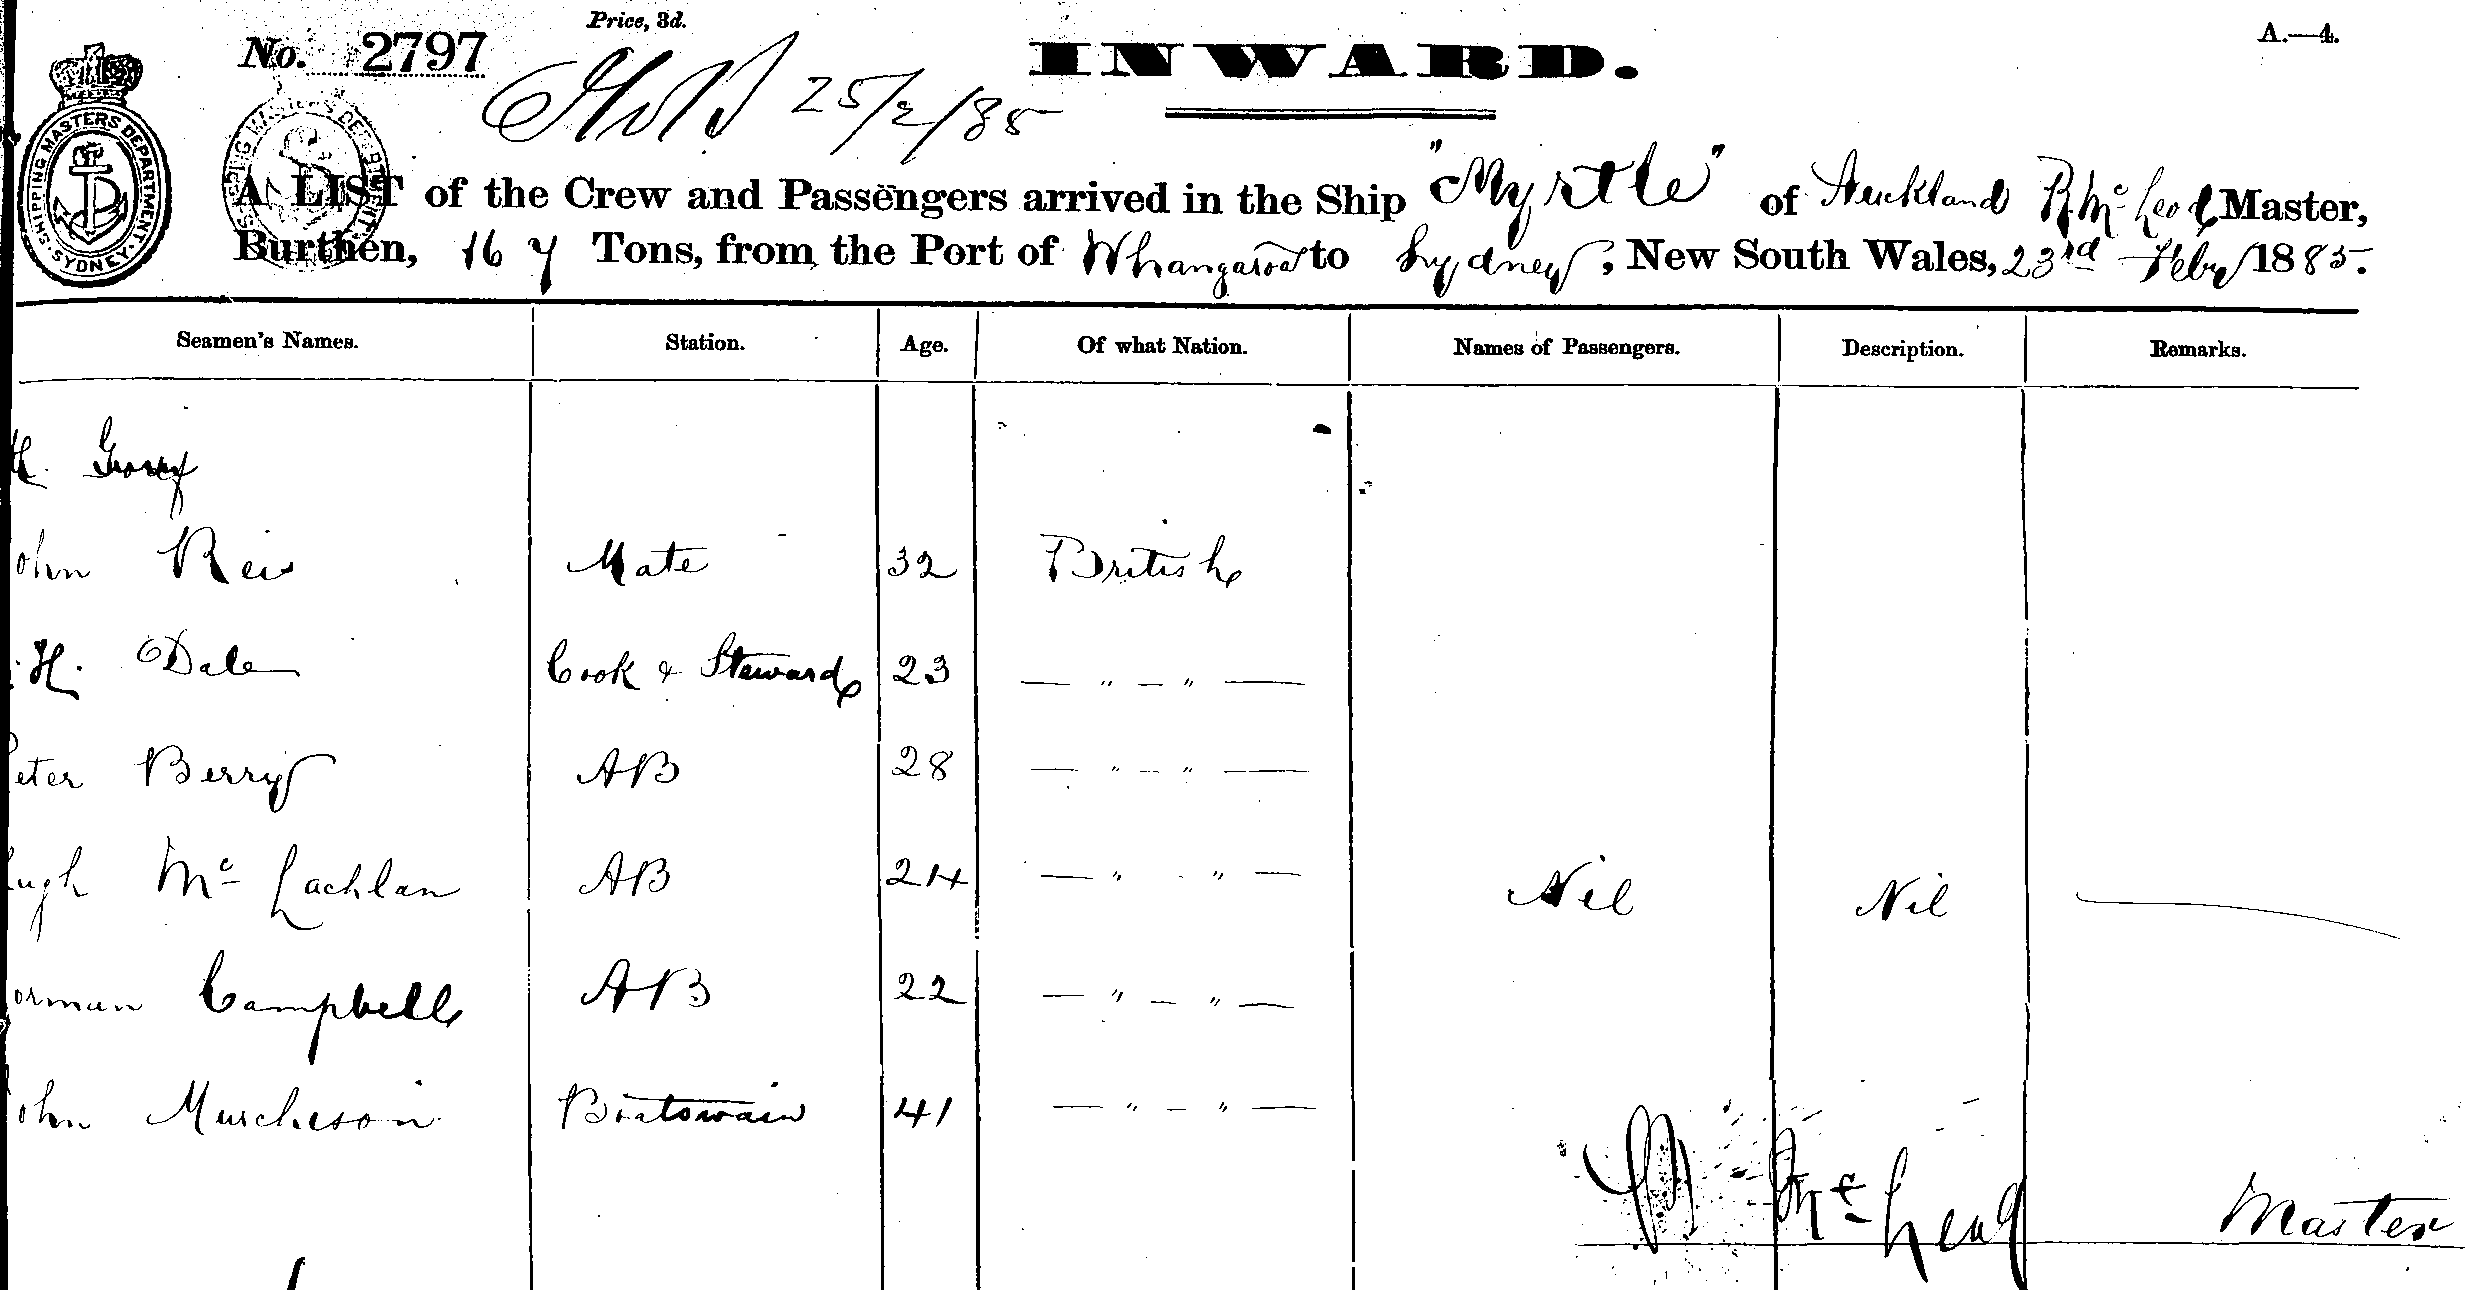 Price, 3d.
A.—4.
No. 2797
INWARD.
25/2/85
SHIPPING MASTERS DEPARTMENT. SYDNEY.
A LIST of the Crew and Passengers arrived in the Ship "Myrtle" of Auckland R McLeod Master,
Burthen, 167 Tons, from the Port of Whangaroa to Sydney, New South Wales, 23rd Feby 1885.
Seamen's Names. Station. Age. Of what Nation. Names of Passengers. Description. Remarks.
H.
ohn Mate 32 British
H. Dale Cook & Steward 23 — " — " —
eter Berry AB 28 — " — " —
ugh Mc Lachlan AB 24 — " " — Nil Nil —
orman Campbell AB 22 — " — " —
ohn Murcheson Boatswain 41 — " — " —
Mc Leod Master